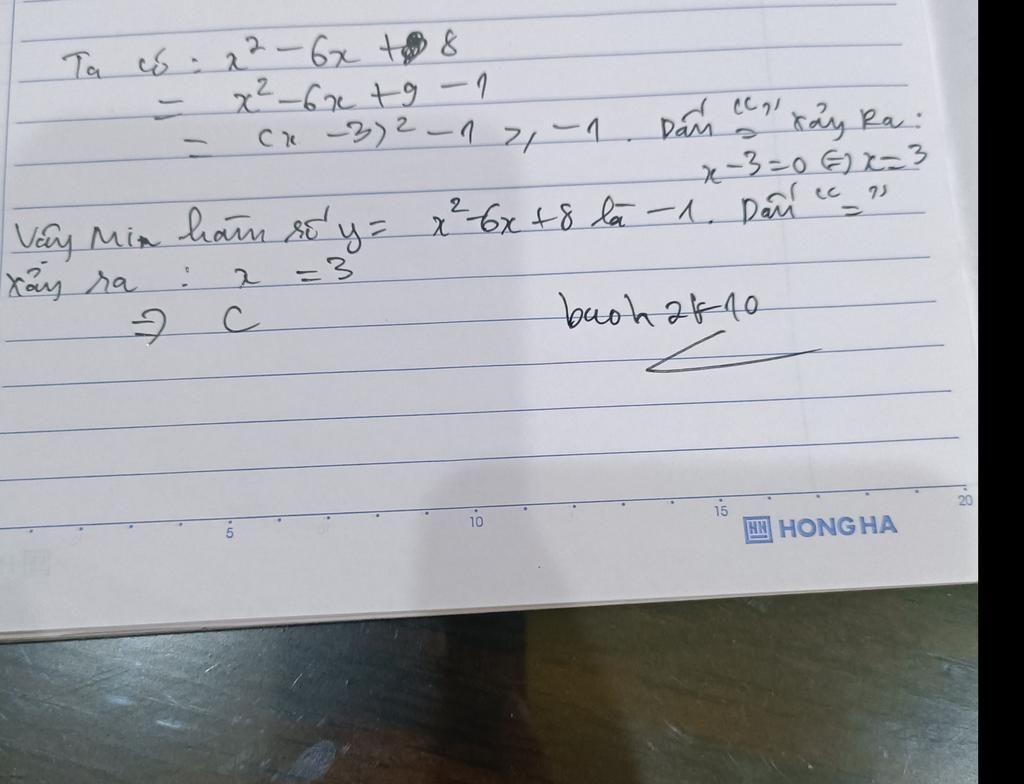 Ta có : x² - 6x + 8
= x² - 6x + 9 - 1
= (x - 3)² - 1 ≥ -1. Dấu "=" xảy Ra :
x - 3 = 0 ⇔ x = 3
Vậy Min hàm số y = x² - 6x + 8 là -1. Dấu "="
xảy ra : x = 3
⇒ C
5
10
15
20
HH HONG HA